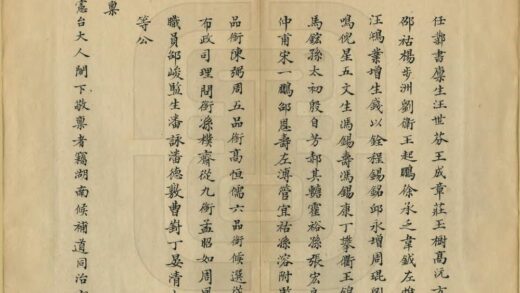 任鄴書廪生汪世芬王成章莊玉樹高沅方
邵祜楊步洲劉衛王起鵬徐承之韋鉞左
汪鳴業增生錢以銓程錫銘邱永增周琨
鳴倪星五文生馮錫壽馮錫康丁攀衢王錦
馬鋐孫太初殷自芳郝其轤霍裕孫張宏
仲甫宋一鵬邵恩壽左溥管宜祜孫溶附
品銜陳弼周五品銜高恒儒六品銜候選從
布政司理問銜孫樸齋從九銜孟昭如周
職員邵峻監生潘詠潘德敦曹嵜丁晏清
等公
稟
憲台大人閣下敬稟者竊湖南候補道同治